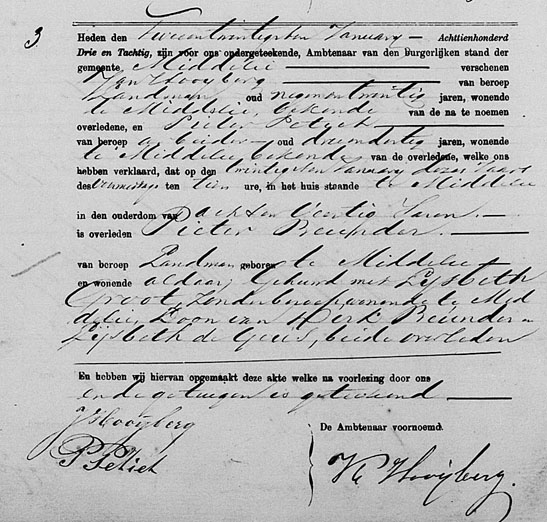 3
Heden den Tweeentwintigsten January Achttienhonderd
Drie en Tachtig, zijn voor ons ondergeteekende, Ambtenaar van den Burgerlijken stand der
gemeente Middelie verschenen
Jan Hooijberg van beroep
Landman oud negenentwintig jaren, wonende
te Middelie, bekende van de na te noemen
overledene, en Pieter Petiet
van beroep arbeider oud drieendertig jaren, wonende
te Middelie bekende van de overledene, welke ons
hebben verklaard, dat op den twintigsten January dezer Jaars
des voormiddags ten tien ure, in het huis staande te Middelie
in den ouderdom van Acht en Veertig Jaren
is overleden Pieter Reunder
van beroep Landman geboren te Middelie
en wonende aldaar, gehuwd met Lijsbeth
Groot, zonder beroep wonende te Mid
delie, Zoon van Dirk Reunder en
Lijsbeth de Geus, beide overleden
En hebben wij hiervan opgemaakt deze akte welke na voorlezing door ons
en de getuigen is geteekend
J Hooijberg
P Petiet
De Ambtenaar voornoemd.
Hooijberg.